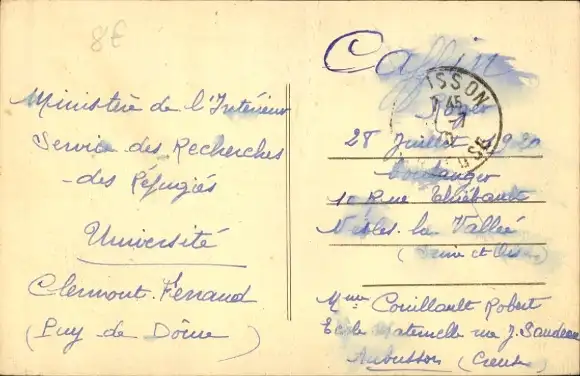 8€
Ministère de l'Intérieur
Service des Recherches
des Réfugiés
Université
Clermont-Ferrand
(Puy de Dôme)
Caffin
Roger
28 Juillet
Boulanger
10 Rue Thiébault
Nesles-la-Vallée
(Seine et Oise)
Mme Couillault Robert
Ecole Maternelle rue J. Sandeau
Aubusson (Creuse)